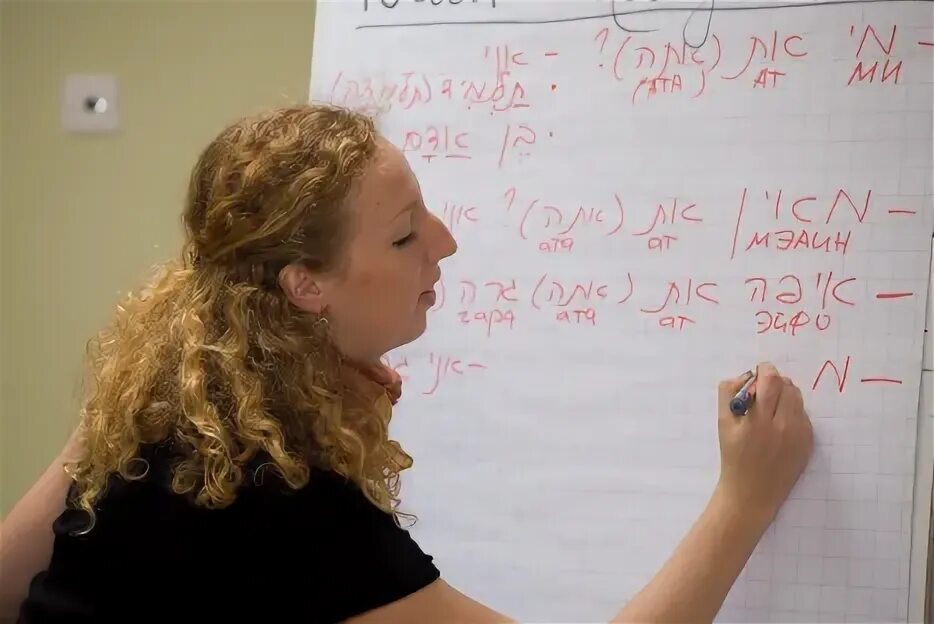 – מי את (אתה)? – אני
МИ АТ (АТА)
• תַלְמִיד (תלמידה)
• בֶּן אָדָם
– מאין את (אתה)?
МЭАИН ат ата
– איפה את (אתה) גרה
ЭЙФО ат ата гара
– אני
– מ